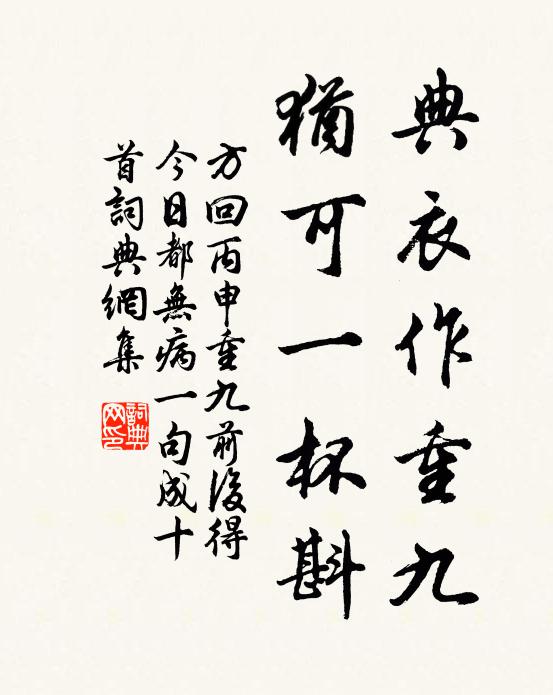 典衣作重九
猶可一杯斟
方回丙申重九前後得
今日都無病一句成十
首詞典網集
詞典網印